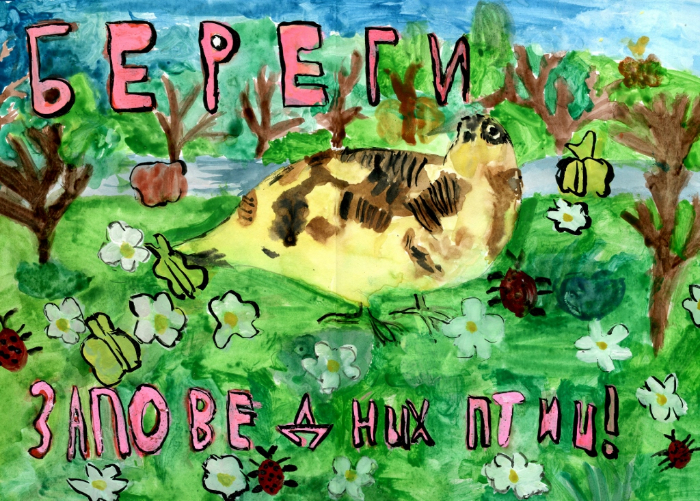 БЕРЕГИ
ЗАПОВЕДНЫХ ПТИЦ!